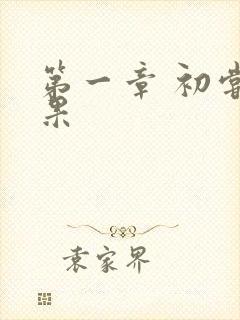 第一章 初尝
果
袁家界